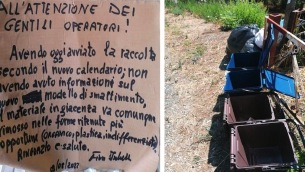 ALL'ATTENZIONE DEI
GENTILI OPERATORI!
Avendo oggi avviato la raccolta
secondo il nuovo calendario; non
avendo avuto informazioni sul
nuovo modello di smaltimento,
il materiale in giacenza va comunque
rimosso nelle forme ritenute più
opportune (organico, plastica, indifferenziata)
Ringrazio e saluto.